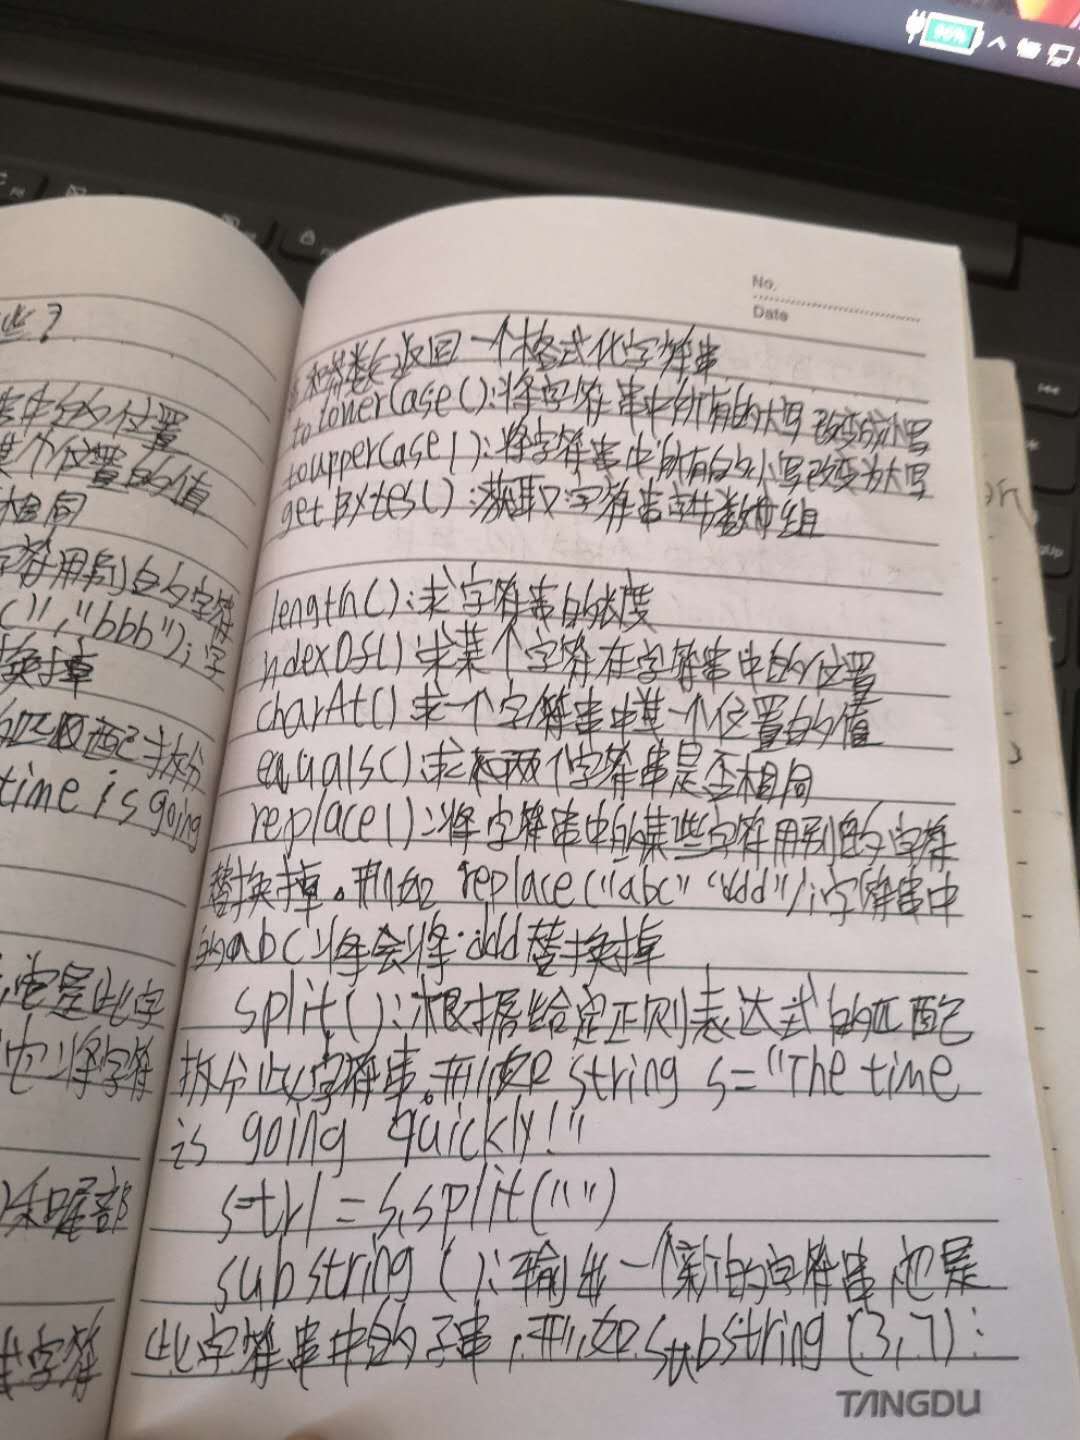 些?
串中的位置
某个位置的值
相同
字符用别的字符
c","bbb");字
换掉
的匹配拆分
time is going
它是此字
它将字符
和尾部
字符
No.
Date
和参数返回一个格式化字符串
toLowerCase():将字符串中所有的大写改变成小写
toupperCase():将字符串中所有的小写改变为大写
getBytes():获取字符串字节数组
length():求字符串的长度
ndexOf()求某个字符在字符串中的位置
charAt()求一个字符串中某一个位置的值
equals():求和两个字符串是否相同
replace():将字符串中的某些字符用别的字符
替换掉。例如 replace("abc" "ddd");字符串中
的abc将会将ddd替换掉
split():根据给定正则表达式的匹配
拆分此字符串。例如 string s="The time
is going quickly!"
str1=s.split("")
substring():输出一个新的字符串,他是
此字符串中的子串,例如substring(3,7):
TANGDU